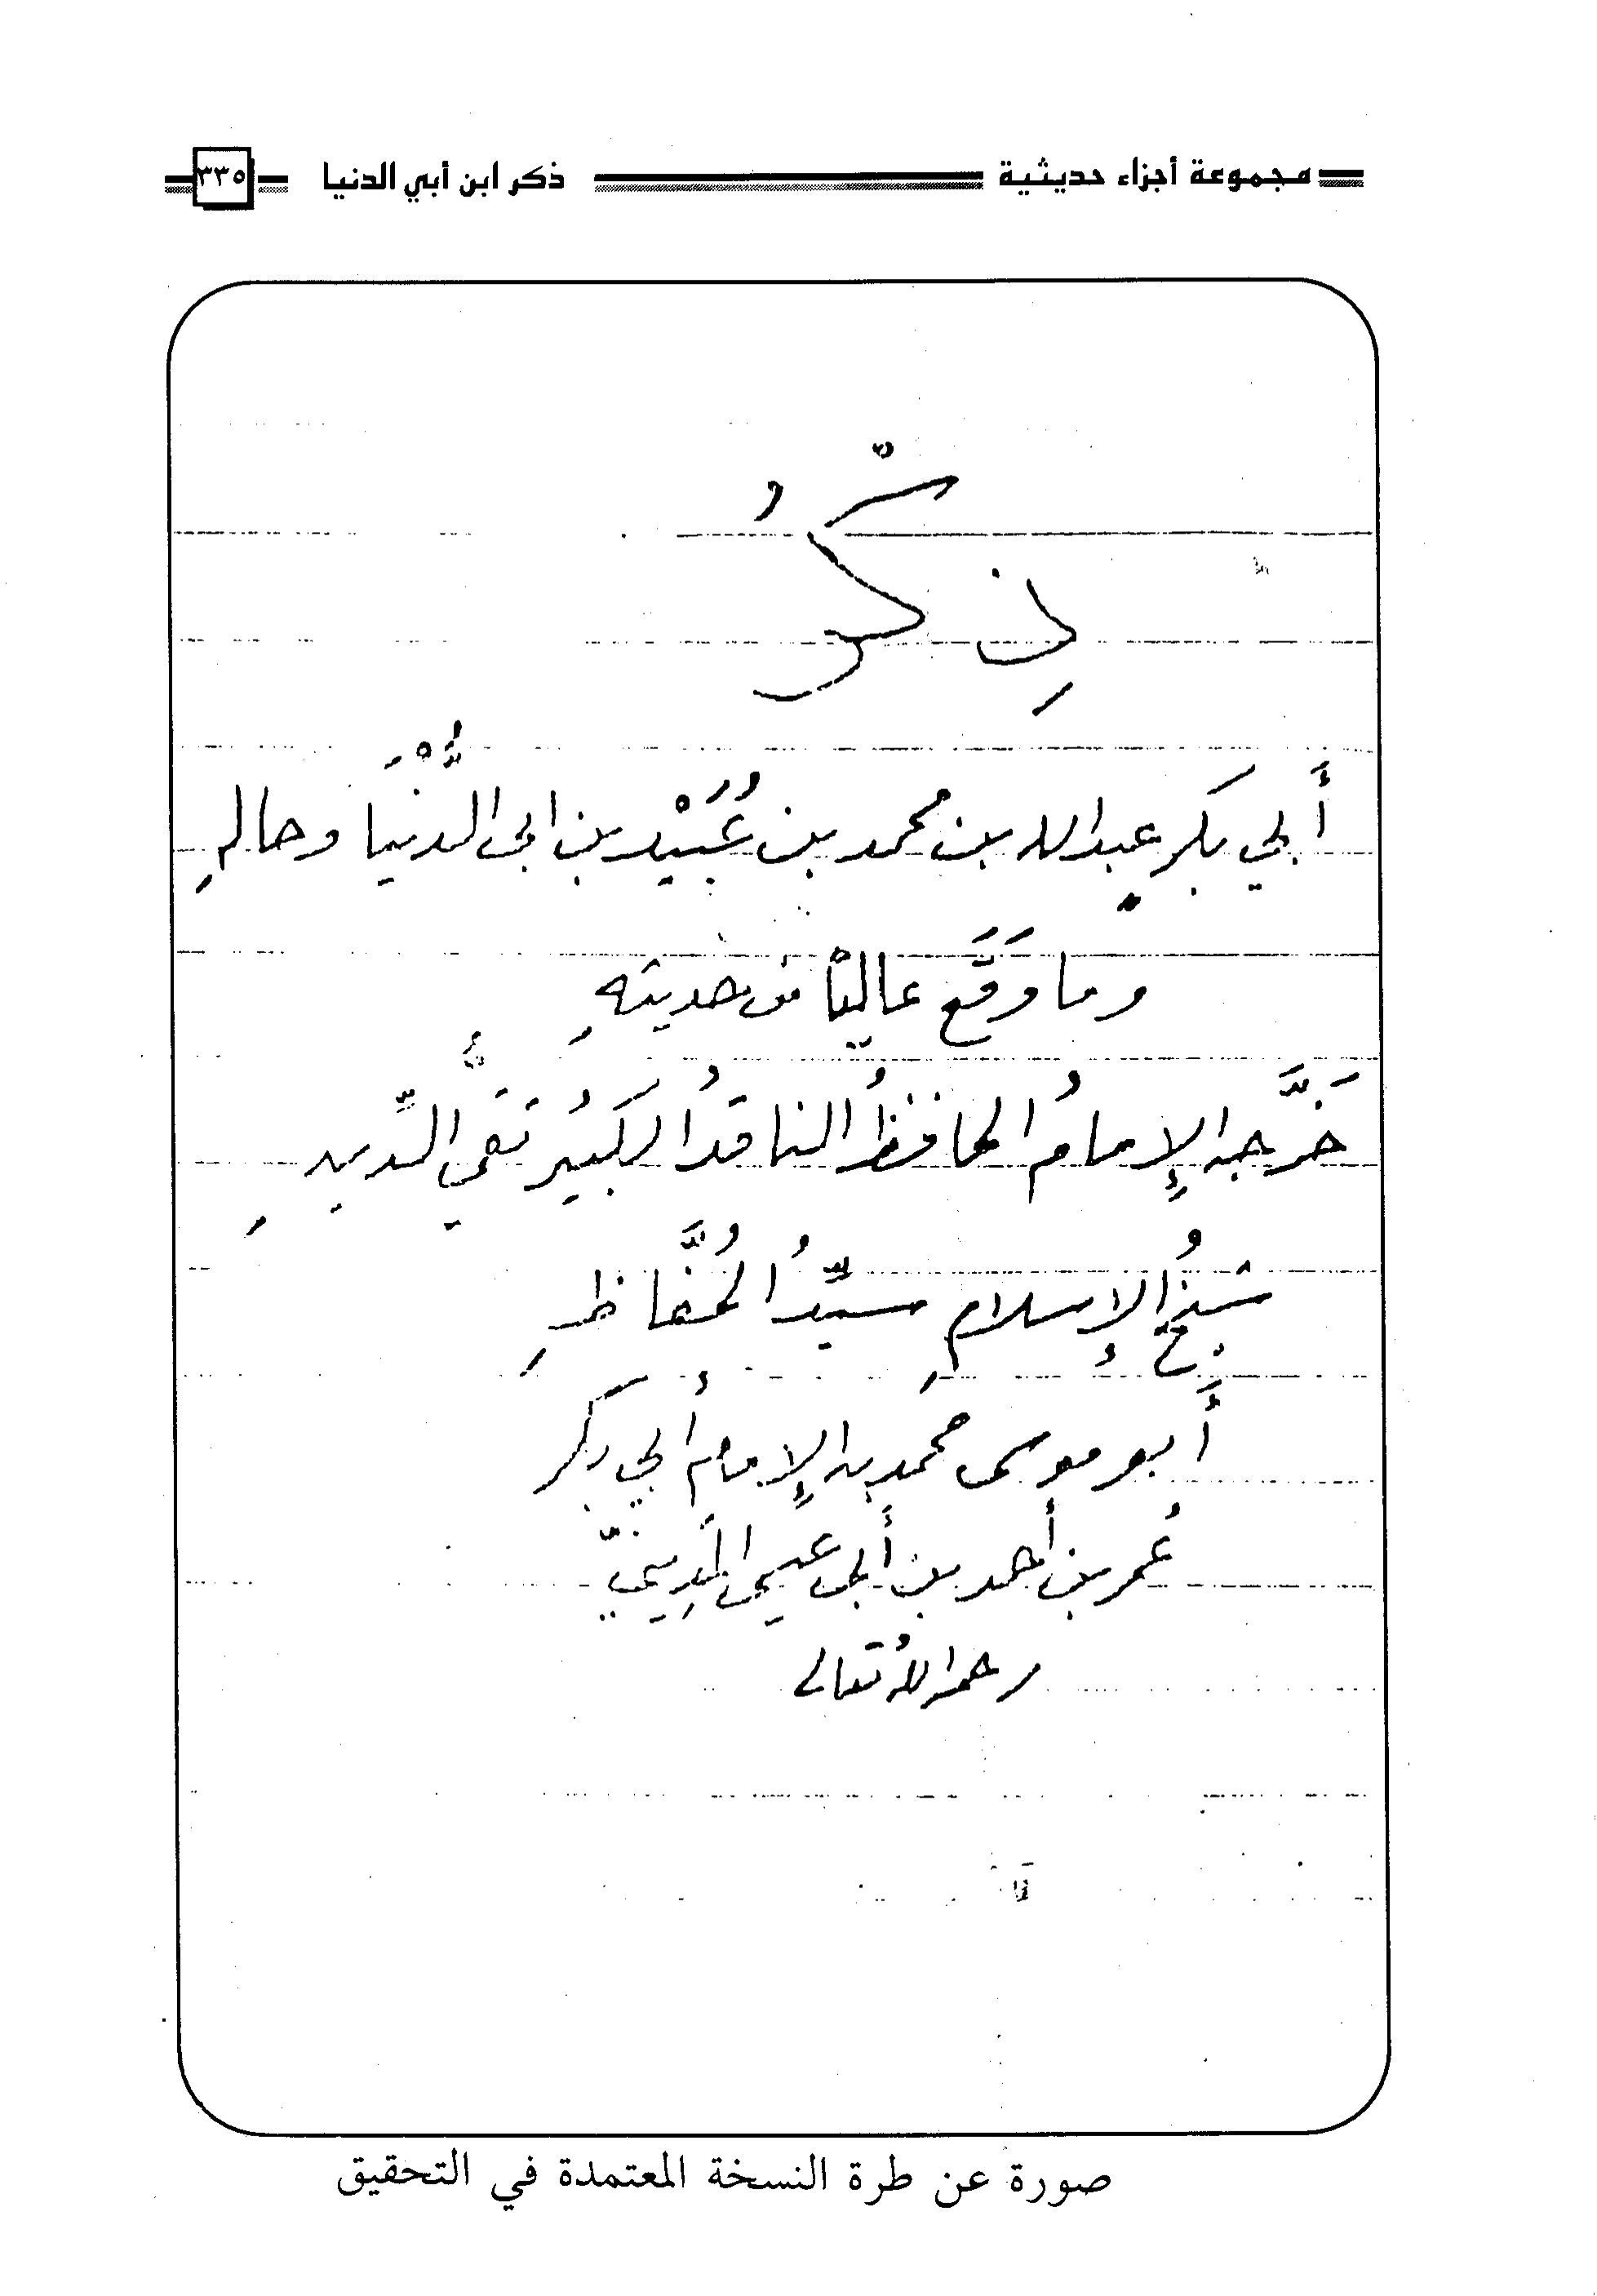 مجموعة أجزاء حديثية ذكر ابن أبي الدنيا ٣٣٥
ذِكْرُ
أَبي بَكر عبدالله بن محمد بن عُبَيْد بن ابى الدُّنْيَا وحالهِ
وما وَقَع عاليًا من حديثهِ
خَرَّجه الإمامُ الحافظُ الناقدُ الكبيُر تقيُّ الدِّينِ
شيخُ الإسلامِ سيِّدُ الحُفَّاظِ
أَبو موسى محمد بن الإمام أبي بكر
عُمر بن أحمد بن أَبى عيسى المَدِينيّ
رحمه اللهُ تعالى
صورة عن طرة النسخة المعتمدة في التحقيق